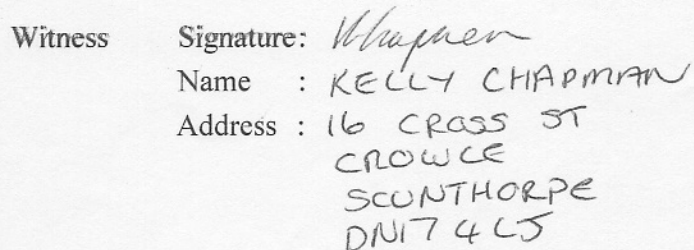 Witness Signature: KChapman
Name : KELLY CHAPMAN
Address : 16 CROSS ST
CROWLE
SCUNTHORPE
DN17 4LJ